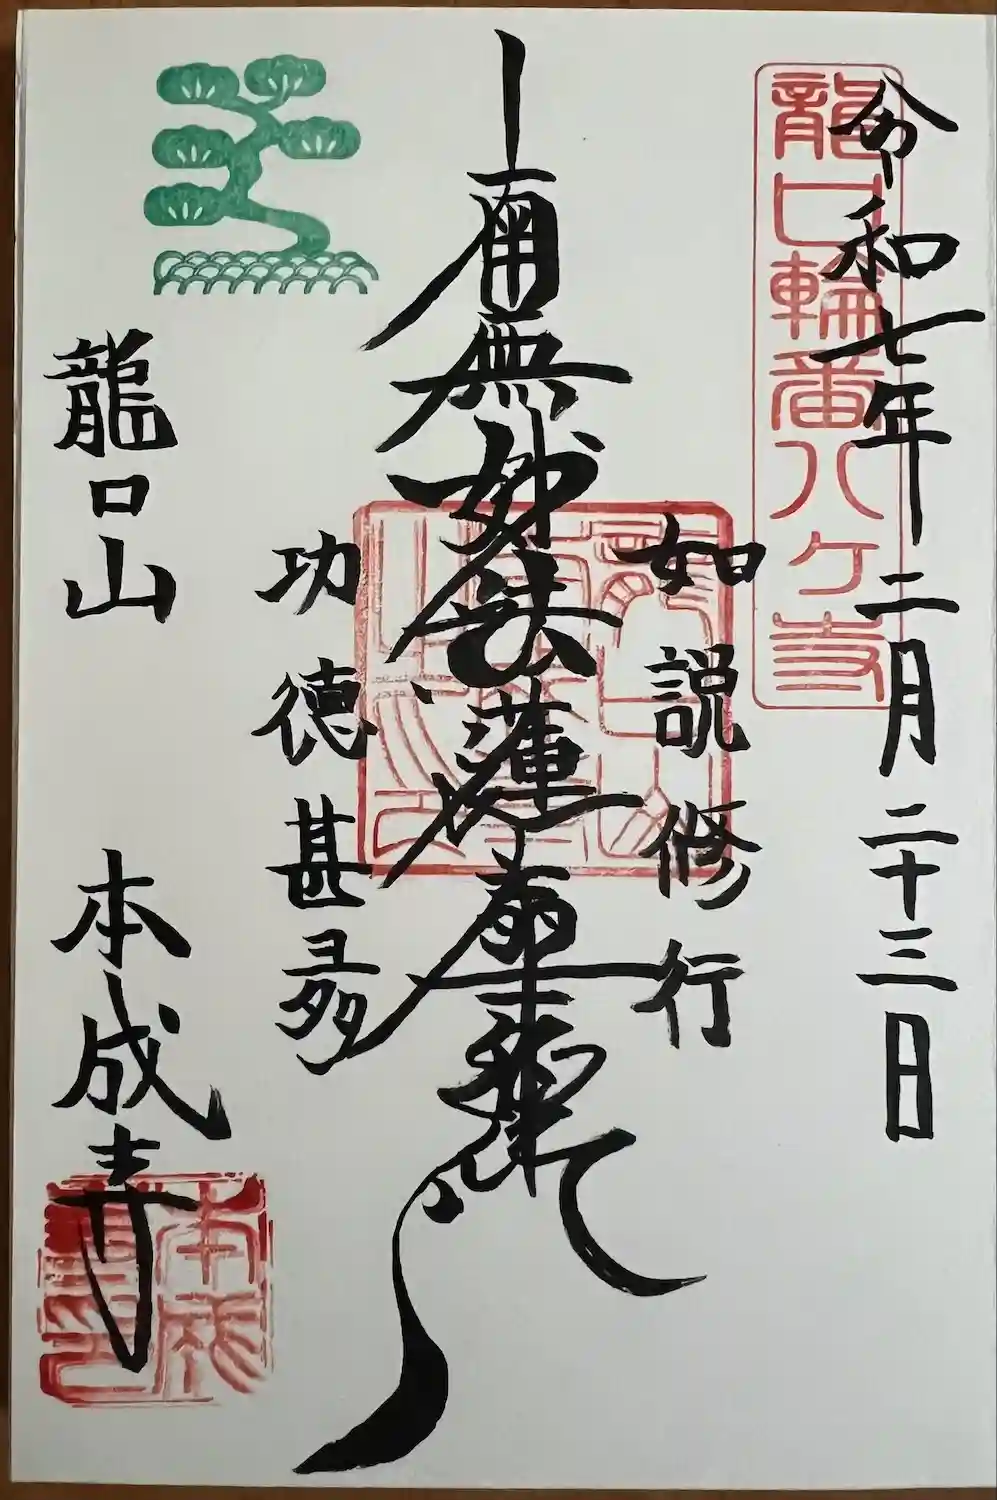 令和七年二月二十三日
龍口輪番八ヶ寺
如説修行
南無妙法蓮華経
功徳甚多
龍口山 本成寺